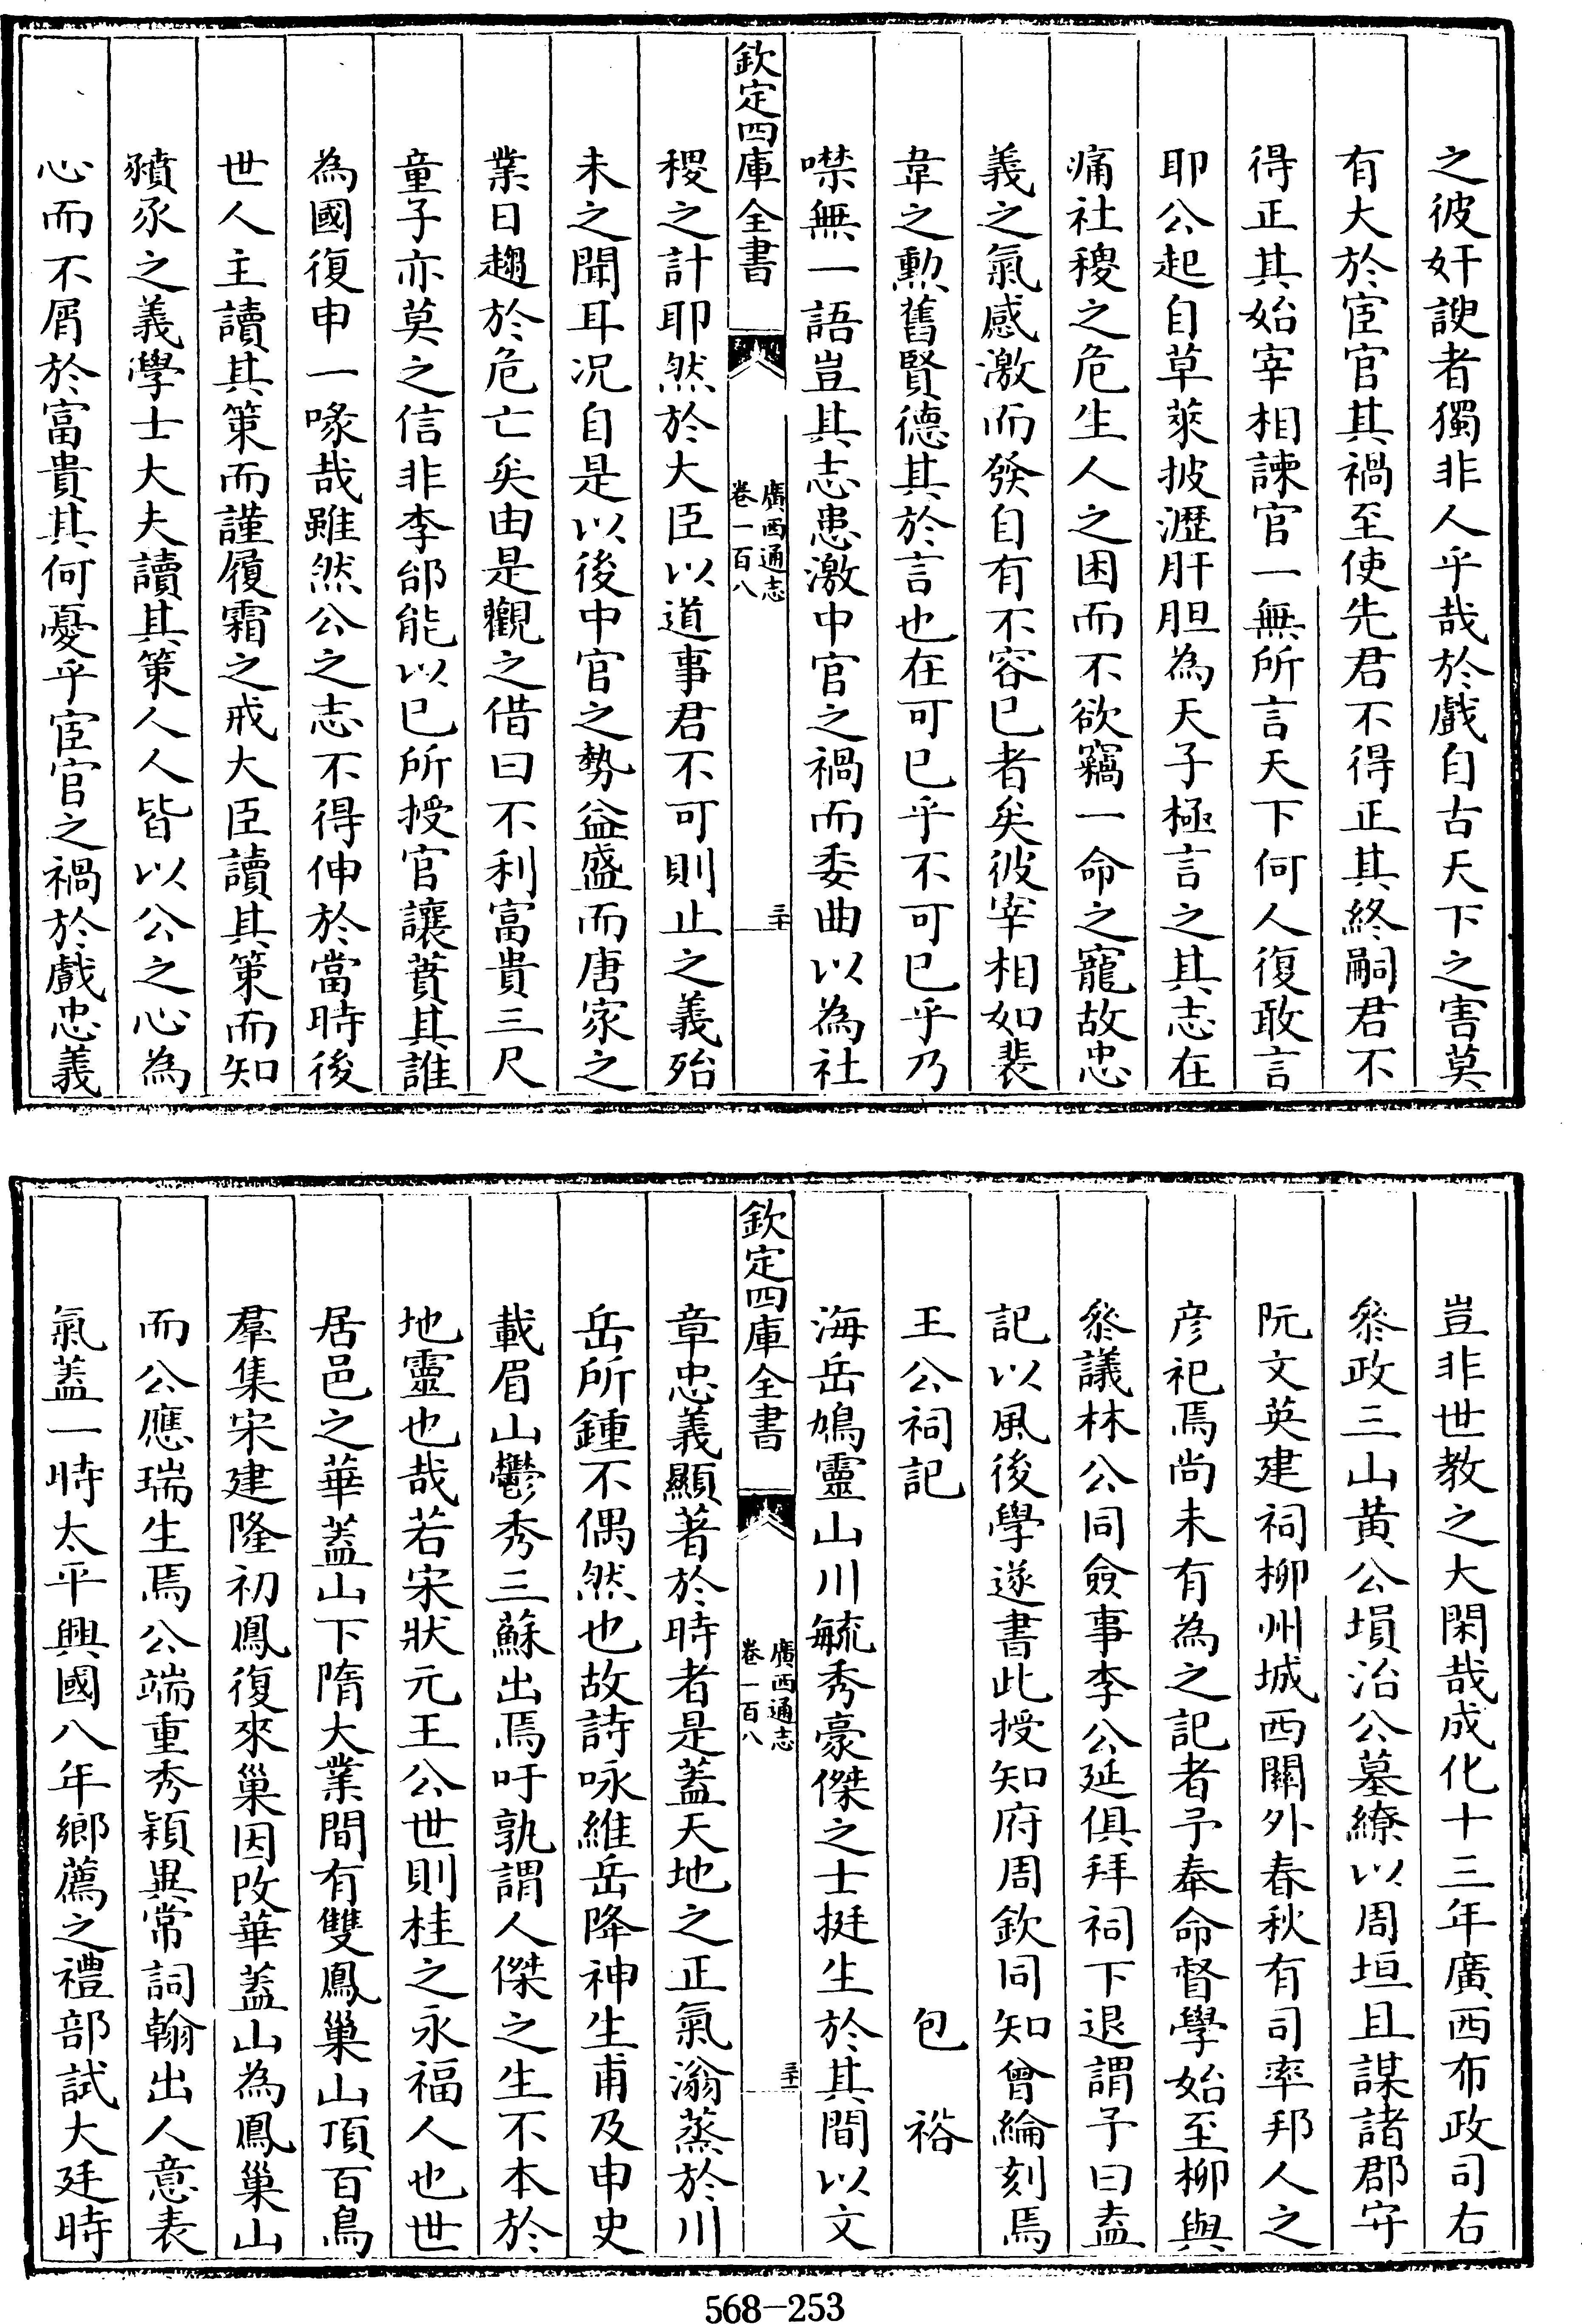 之彼奸諛者獨非人乎哉於戲自古天下之害莫
有大於宦官其禍至使先君不得正其終嗣君不
得正其始宰相諫官一無所言天下何人復敢言
耶公起自草萊披瀝肝胆為天子極言之其志在
痛社稷之危生人之困而不欲竊一命之寵故忠
義之氣感激而發自有不容已者矣彼宰相如裴
韋之勲舊賢德其於言也在可已乎不可已乎乃
噤無一語豈其志患激中官之禍而委曲以為社
欽定四庫全書
廣西通志
卷一百八
三十
稷之計耶然於大臣以道事君不可則止之義殆
未之聞耳况自是以後中官之勢益盛而唐家之
業日趨於危亡矣由是觀之借曰不利富貴三尺
童子亦莫之信非李郃能以已所授官讓蕡其誰
為國復申一喙哉雖然公之志不得伸於當時後
世人主讀其策而謹履霜之戒大臣讀其策而知
豶豕之義學士大夫讀其策人人皆以公之心為
心而不屑於富貴其何憂乎宦官之禍於戲忠義
豈非世教之大閑哉成化十三年廣西布政司右
叅政三山黄公塤治公墓繚以周垣且謀諸郡守
阮文英建祠柳州城西關外春秋有司率邦人之
彦祀焉尚未有為之記者予奉命督學始至柳與
叅議林公同僉事李公延俱拜祠下退謂予曰盍
記以風後學遂書此授知府周欽同知曾綸刻焉
王公祠記　　　　　　　　　　包　裕
海岳鳩靈山川毓秀豪傑之士挺生於其間以文
欽定四庫全書
廣西通志
卷一百八
三十一
章忠義顯著於時者是蓋天地之正氣滃蒸於川
岳所鍾不偶然也故詩咏維岳降神生甫及申史
載眉山鬱秀三蘇出焉吁孰謂人傑之生不本於
地靈也哉若宋狀元王公世則桂之永福人也世
居邑之華蓋山下隋大業間有雙鳳巢山頂百鳥
羣集宋建隆初鳳復來巢因改華蓋山為鳳巢山
而公應瑞生焉公端重秀穎異常詞翰出人意表
氣蓋一時太平興國八年鄉薦之禮部試大廷時
568-253